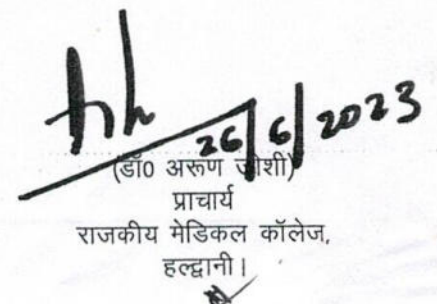 26/6/2023
(डॉ0 अरूण जोशी)
प्राचार्य
राजकीय मेडिकल कॉलेज,
हल्द्वानी।